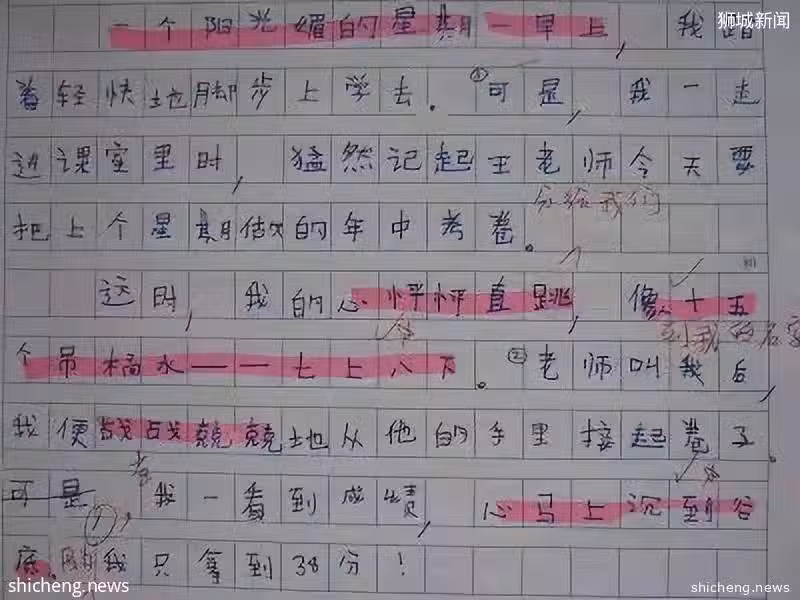 狮城新闻
一个阳光媚的星期一早上，我踏
着轻快地脚步上学去。①可是，我一走
进课室里时，猛然记起王老师今天要
分给我们
把上个星期做的年中考卷。
这时，我的心怦怦直跳，像十五
到我的名字
个吊桶水——七上八下。②老师叫我后，
我便战战兢兢地从他的手里接起卷子。
可是，我一看到成绩，心马上沉到谷
底。我只拿到38分！
shicheng.news
shicheng.news